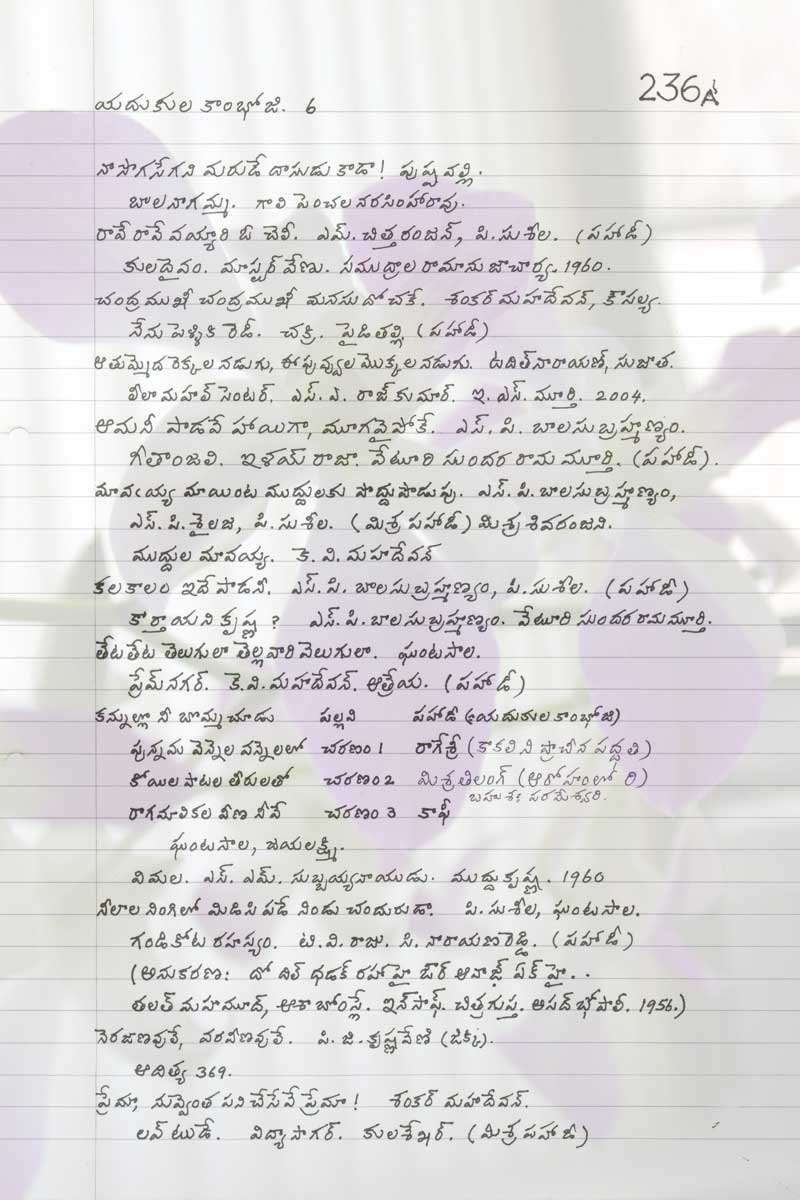 236A
యదుకుల కాంభోజి. 6
నా సొగసేగని మరుడే దాసుడు కాడా! పుష్పవల్లి.
బాలనాగమ్మ. గాలి పెంచల నరసింహారావు.
రావే రావే వయ్యారి ఓ చెలీ. ఎమ్. చిత్తరంజన్, పి. సుశీల. (పహాడీ)
కులదైవం. మాస్టర్ వేణు. సముద్రాల రామానుజాచార్య. 1960.
చంద్రముఖీ చంద్రముఖీ మనసుదోచకే. శంకర్ మహదేవన్, కౌసల్య.
నేను పెళ్ళికి రెడీ. చక్రి. పైడితల్లి. (పహాడీ)
ఆ తుమ్మెద రెక్కల నడుగు, ఈ పువ్వుల మొక్కల నడుగు. ఉదిత్ నారాయణ్, సుజాత.
లీలా మహల్ సెంటర్. ఎస్. ఎ. రాజ్ కుమార్. ఇ. ఎస్. మూర్తి. 2004.
ఆమనీ పాడవే హాయిగా, మూగవైపోకే. ఎస్. పి. బాలసుబ్రహ్మణ్యం.
గీతాంజలి. ఇళయ్ రాజా. వేటూరి సుందర రామ మూర్తి. (పహాడీ).
మావఁయ్య మాయింట ముద్దులకు పొద్దుపొడుపు. ఎస్. పి. బాలసుబ్రహ్మణ్యం,
ఎస్. పి. శైలజ, పి. సుశీల. (మిశ్ర పహాడీ) మిశ్ర శివరంజని.
ముద్దుల మావయ్య. కె. వి. మహదేవన్
కలకాలం ఇదే పాడనీ. ఎస్. పి. బాలసుబ్రహ్మణ్యం, పి. సుశీల. (పహాడీ)
కొర్తాయని కృష్ణ? ఎస్. పి. బాలసుబ్రహ్మణ్యం. వేటూరి సుందరరామమూర్తి.
తేట తేట తెలుగులా తెల్లవారి వెలుగులా. ఘంటసాల.
ప్రేమ్ నగర్. కె. వి. మహదేవన్. ఆత్రేయ. (పహాడీ)
కన్నుల్లో నీ బొమ్మ చూడు పల్లవి పహాడీ (యదుకుల కాంభోజి)
పున్నమ వెన్నెల వన్నెలలో చరణం 1 రాగేశ్రీ (కాకలిని ప్రాచీన పద్ధతి)
కోయిల పాటల తీరులతో చరణం 2 మిశ్ర తిలంగ్ (ఆరోహంలో రి)
బహుశః పరమేశ్వరి.
రాగమాలికల వీణ నీవే చరణం 3 కాఫీ
ఘంటసాల, జయలక్ష్మి.
విమల. ఎస్. ఎమ్. సుబ్బయ్యనాయుడు. ముద్దుకృష్ణ. 1960
నీలాల నింగిలో మిడిసి పడే నిండు చందురుడా. పి. సుశీల, ఘంటసాల.
గండికోట రహస్యం. టి. వి. రాజు. సి. నారాయణరెడ్డి. (పహాడీ)
(అనుకరణ: దో దిల్ ధడక్ రహా హై ఔర్ ఆవాజ్ ఏక్ హై..
తలత్ మహమూద్, ఆశా భోంస్లే. ఇన్సాఫ్. చిత్రగుప్త. అసద్ భోపాలీ. 1956.)
నెరజణవులే, వరవీణవులే. పి. జి. కృష్ణవేణి (జిక్కి).
ఆదిత్య 369.
ప్రేమా, నువ్వెంత పని చేసేవే ప్రేమా! శంకర్ మహదేవన్.
లవ్ టుడే. విద్యాసాగర్. కులశేఖర్. (మిశ్ర పహాడీ)